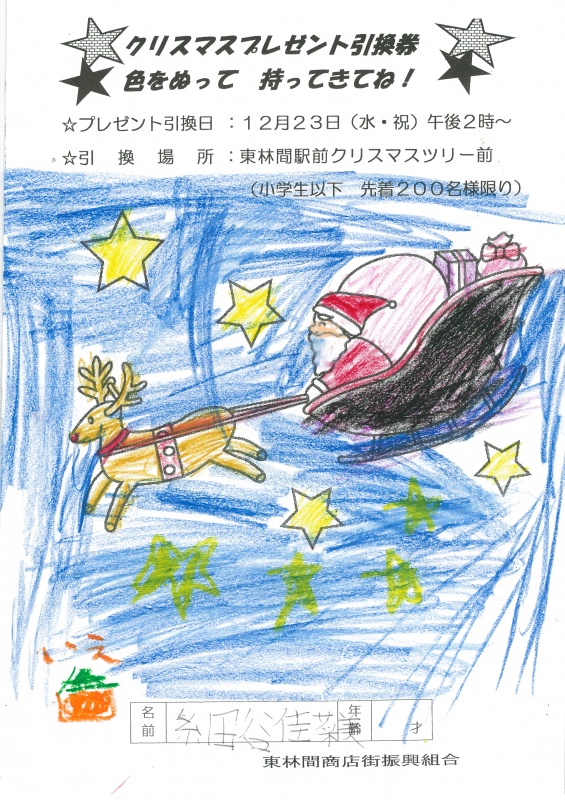 クリスマスプレゼント引換券
色をぬって 持ってきてね！
☆プレゼント引換日：１２月２３日（水・祝）午後２時～
☆引換場所：東林間駅前クリスマスツリー前
（小学生以下 先着２００名様限り）
いえ
名前 細谷佳菜美 年齢 才
東林間商店街振興組合